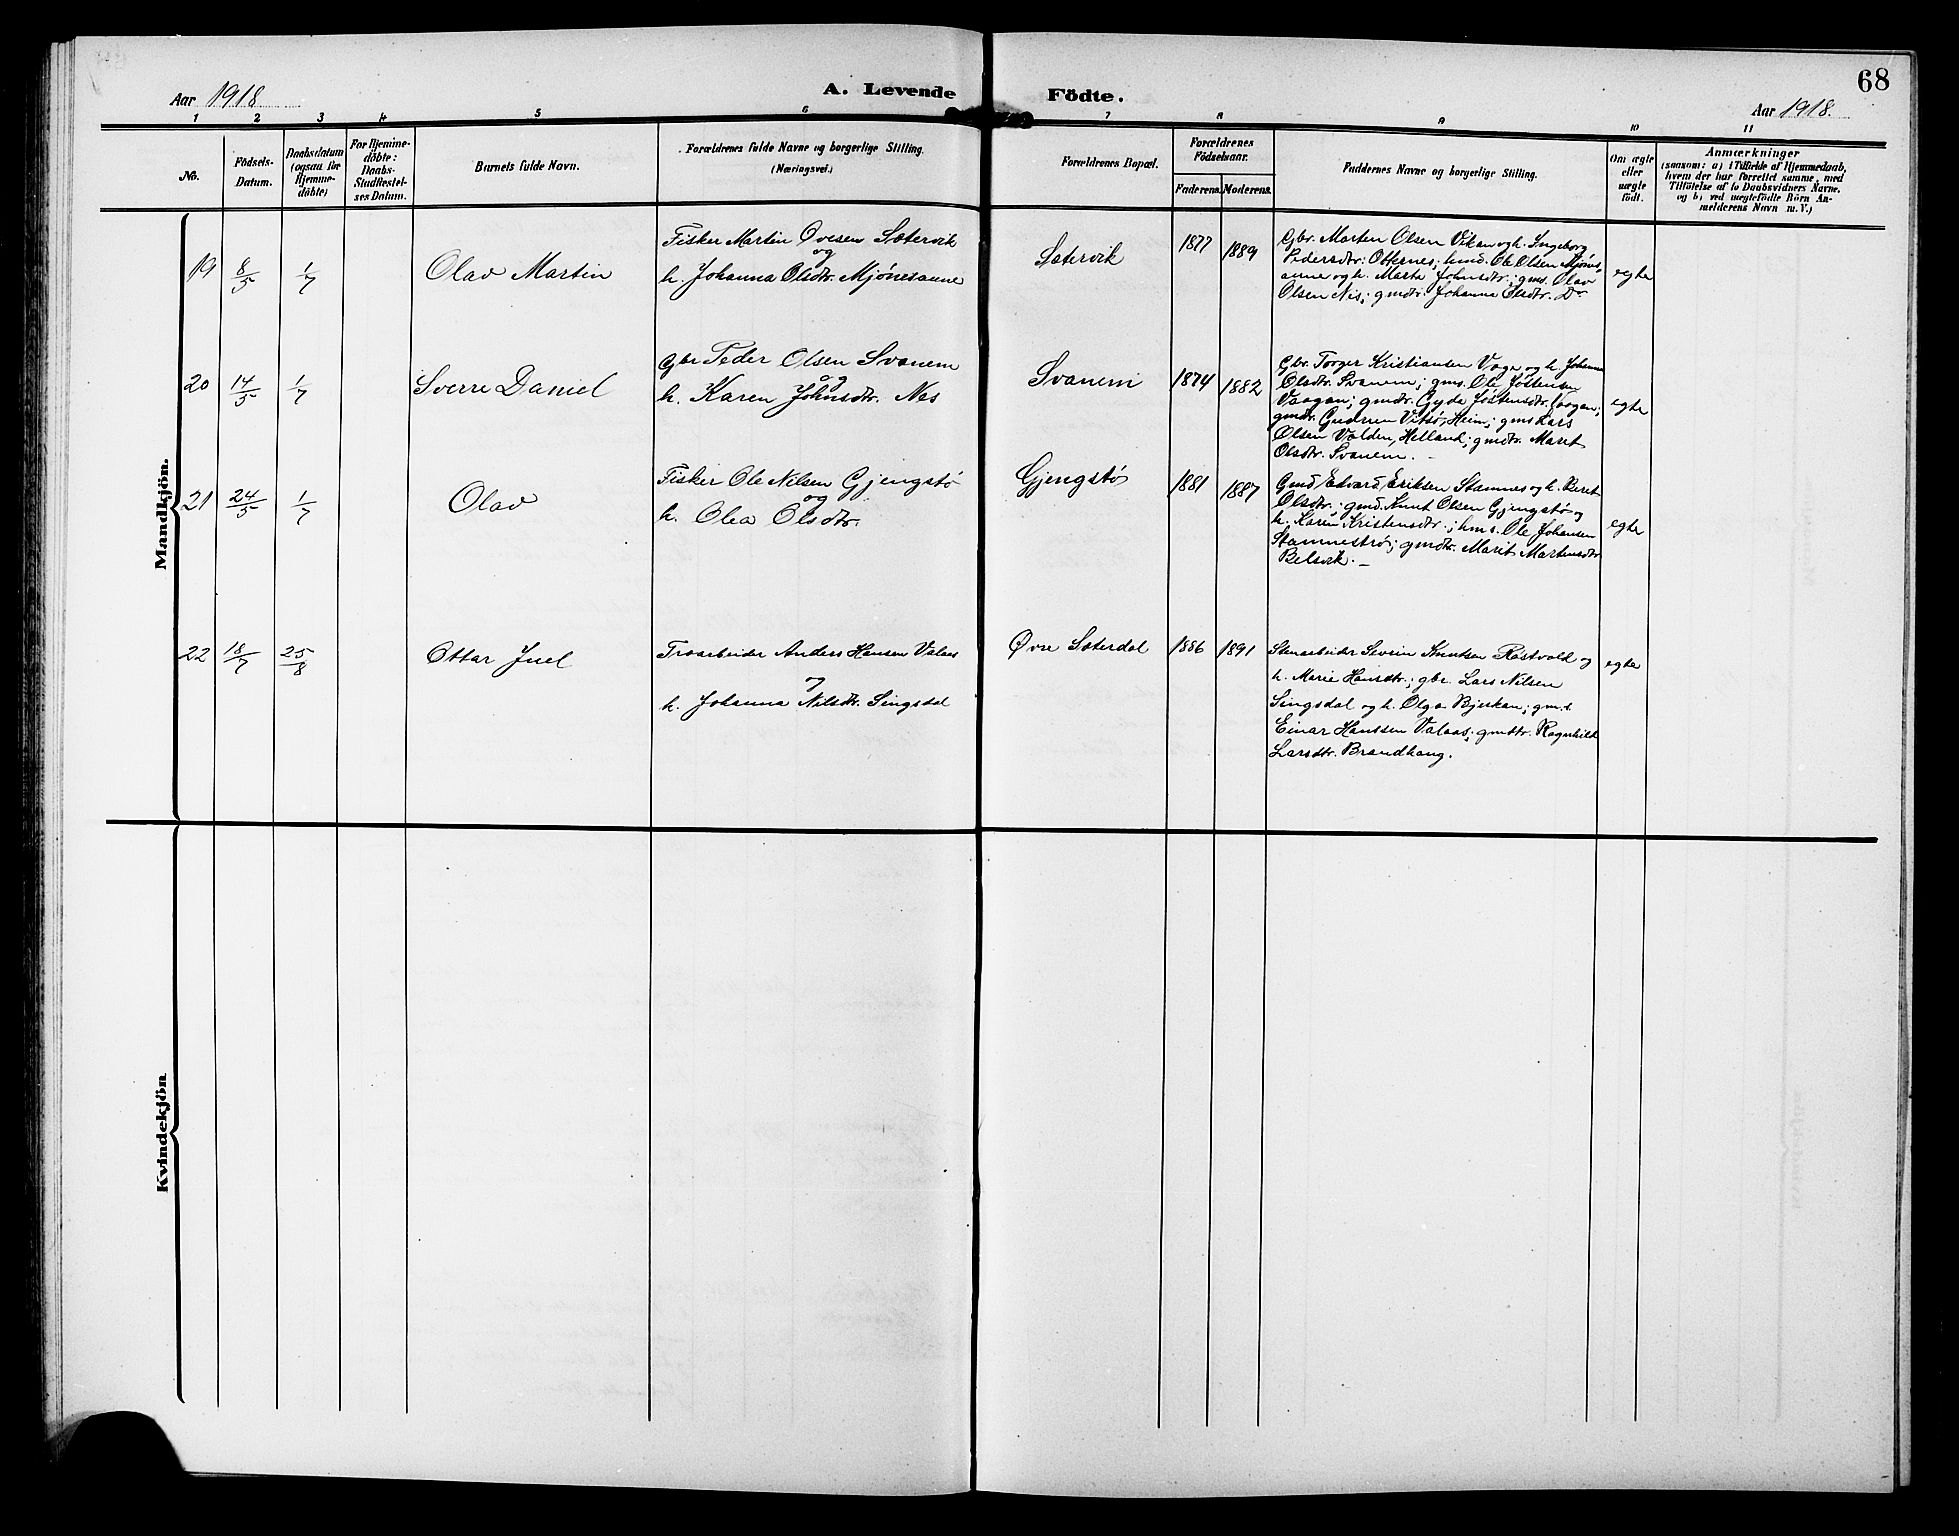 68
Aar 1918
A. Levende Födte.
Aar 1918.
1 2 3 4 5 6 7 8 9 10 11
No.
Födsels-
Datum.
Daabsdatum
(ogsaa for
Hjemme-
döbte)
For Hjemme-
döbte:
Daabs-
Stadfæstel-
ses Datum.
Barnets fulde Navn.
Forældrenes fulde Navne og borgerlige Stilling.
(Næringsvei.)
Forældrenes Bopæl.
Forældrenes
Födselsaar.
Faderens. Moderens.
Faddernes Navne og borgerlige Stilling.
Om ægte
eller
uægte
födt.
Anmærkninger
(saasom: a) i Tilfælde af Hjemmedaab,
hvem der har forrettet samme, med
Tilföielse af to Daabsvidners Navne.
og b) ved uægtefödte Börn An-
melderens Navn m. V.)
Mandkjön.
19 8/5 1/7 Olav Martin
Fisker Martin Ovesen Sætervik
og
h. Johanna Olsdtr. Mjønesaune
Sætervik 1877 1889
Gbr. Morten Olsen Vikan og h. Ingeborg
Pedersdtr. Otternes; kmd. Ole Olsen Mjønes-
aune og h. Marta Johnsdtr.; gms. Olav
Olsen Nes; gmdtr. Johanna Olsdtr. Do
egte
20 14/5 1/7 Sverre Daniel
Gbr Peder Olsen Svanem
og
h. Karen Johnsdtr. Nes
Svanem 1874 1882
Gbr. Torger Kristiansen Vage og h. Johanna
Olsdtr. Svanem; gms. Ole Jøstensen
Vaagan; gmdtr. Gyda Jøstensdtr. Vaagan;
gmdtr. Gudrun Vitsø, Heim; gms Lars
Olsen Volden, Helland; gmdtr. Marit
Olsdtr. Svanem. -
egte
21 24/5 1/7 Olav
Fisker Ole Nilsen Gjengstø
og
h. Olea Olsdtr.
Gjengstø 1881 1887
Gmd Edvard Eriksen Stamnes og h. Beret
Olsdtr.; gmd. Knut Olsen Gjengstø og
h. Karen Kristensdtr.; hms. Ole Johansen
Stamnestrø; gmdtr. Marit Martinsdtr
Belsvik. -
egte
22 18/7 25/8 Ottar Juel
Træarbeider Anders Hansen Valaas
og
h. Johanna Nilsdtr. Singsdal
Øvre Sæterdal 1886 1891
Stenarbeider Severin Knutsen Røstvold og
h. Marie Hansdtr.; gbr. Lars Nilsen
Singsdal og h. Olga Bjerkan; gms.
Einar Hanssen Valaas; gmdtr. Ragnhild
Larsdtr. Brandhaug.
egte
Kvindekjön